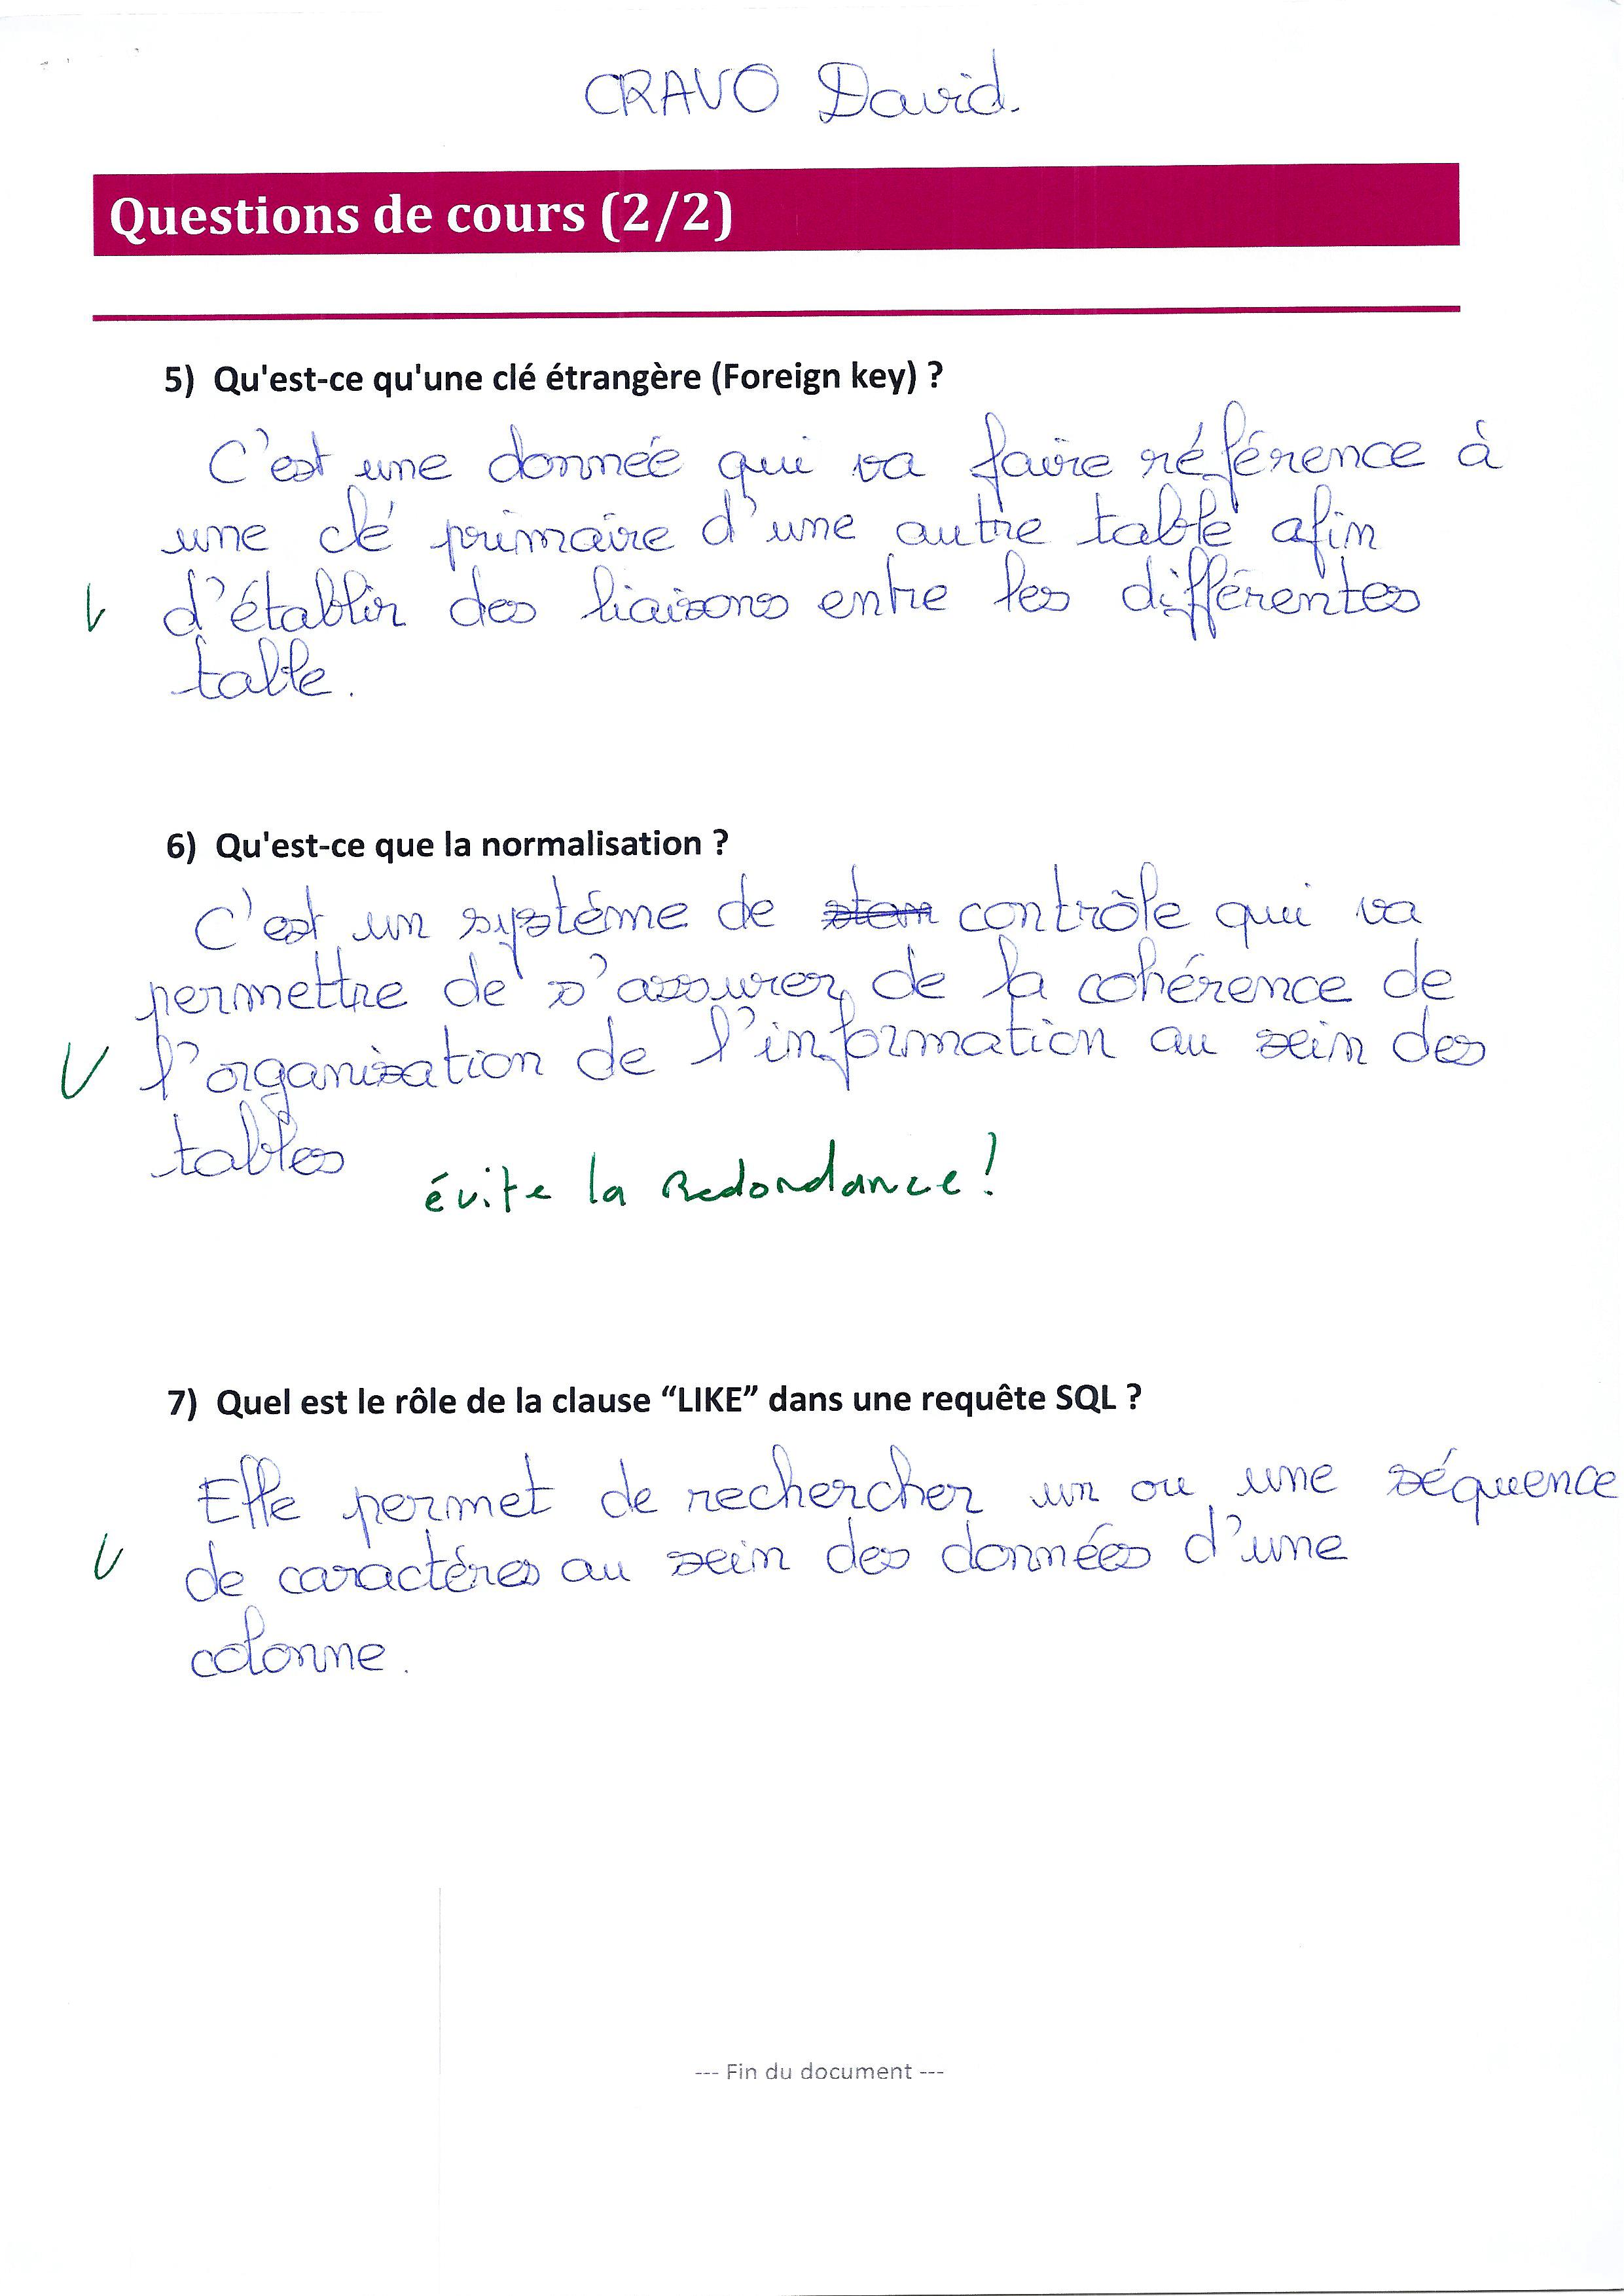 CRAVO David.
Questions de cours (2/2)
5) Qu'est-ce qu'une clé étrangère (Foreign key) ?
C'est une donnée qui va faire référence à
une clé primaire d'une autre table afin
d'établir des liaisons entre les différentes
table.
6) Qu'est-ce que la normalisation ?
C'est un systéme de contrôle qui va
permettre de s'assurer de la cohérence de
l'organisation de l'information au sein des
tables
évite la Redondance !
7) Quel est le rôle de la clause “LIKE” dans une requête SQL ?
Elle permet de rechercher un ou une séquence
de caractéres au sein des données d'une
colonne.
--- Fin du document ---